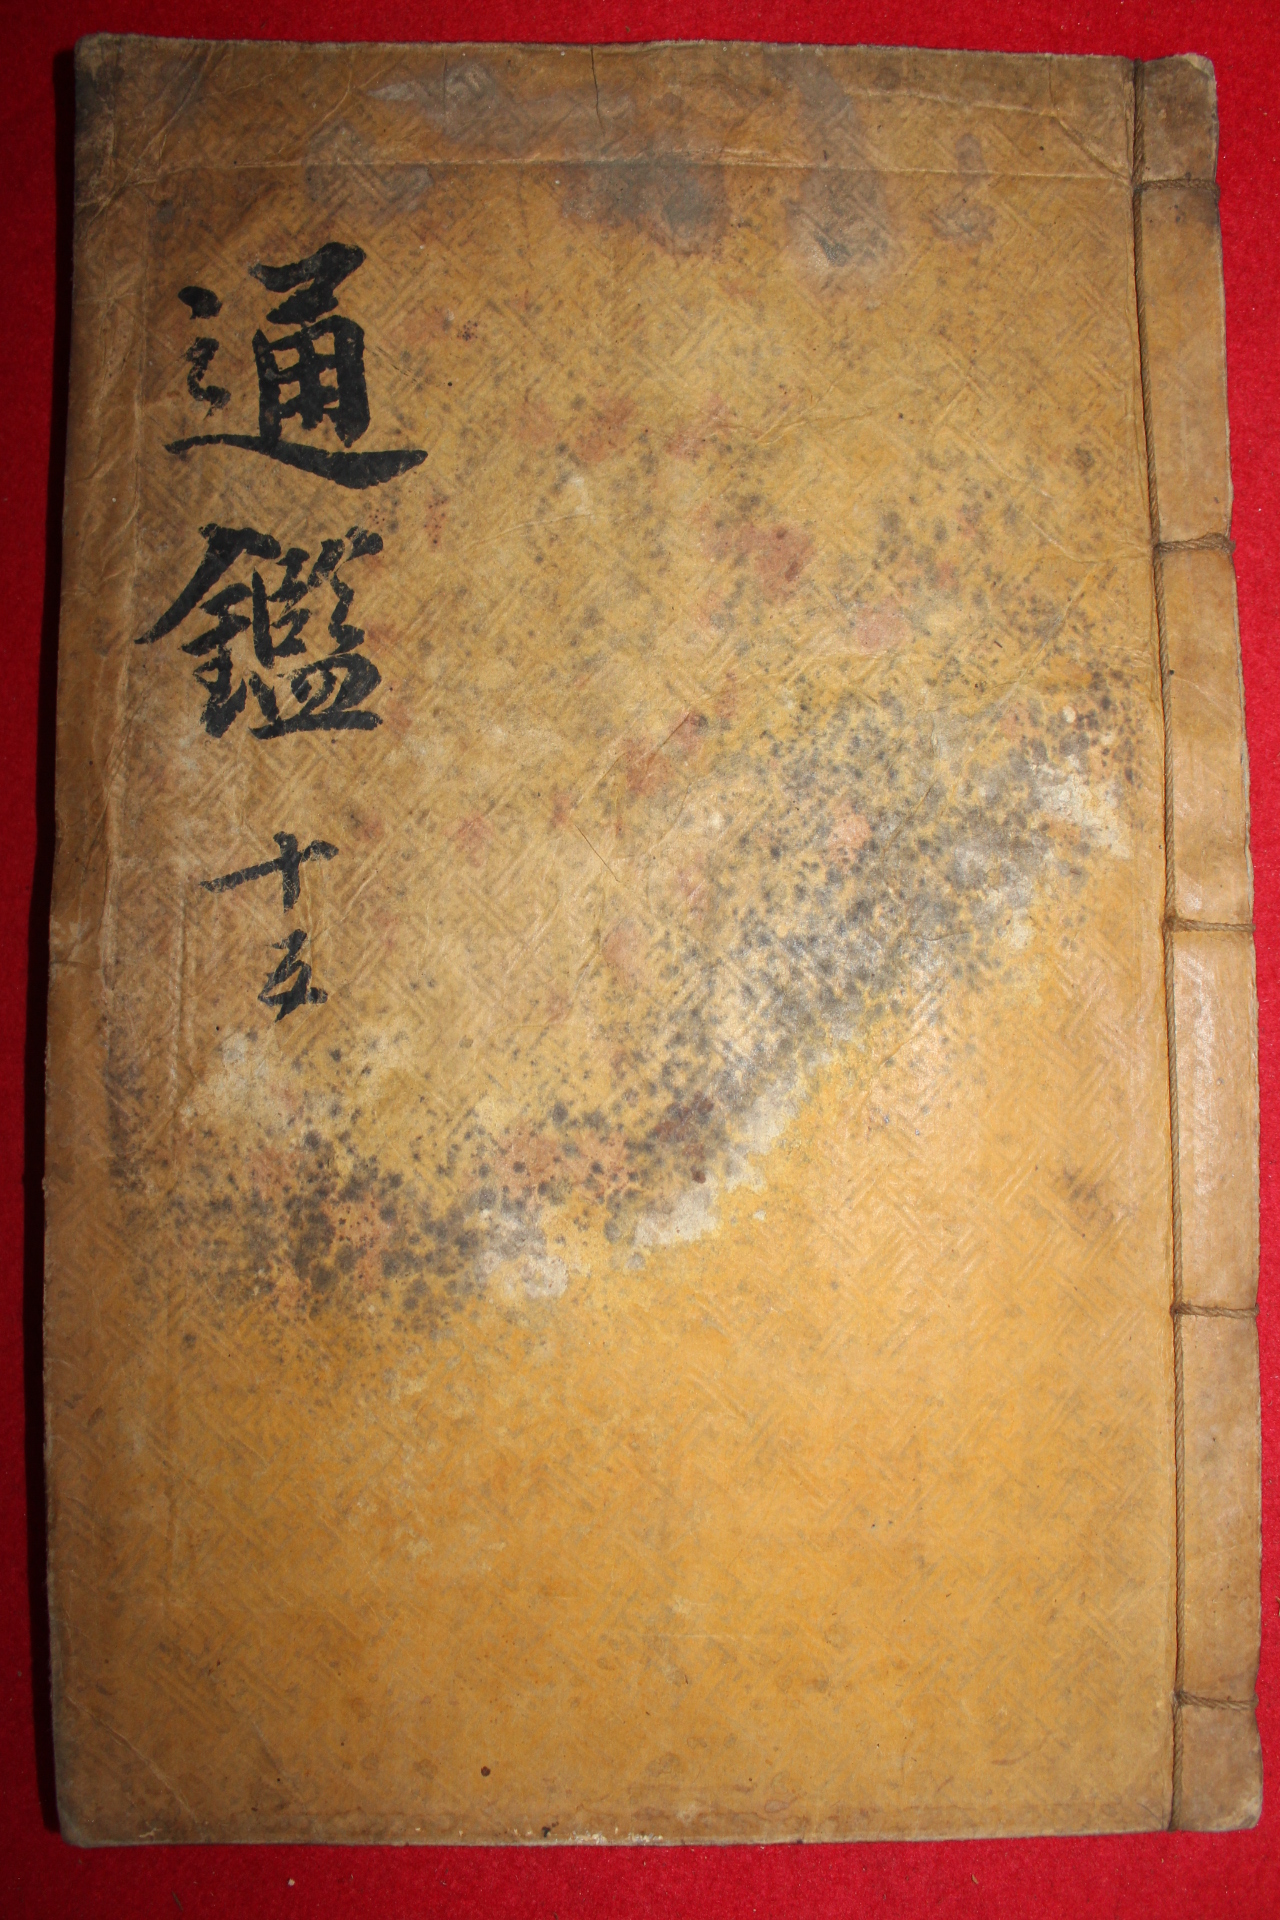 通鑑 十五